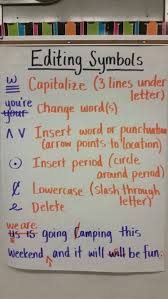 Editing Symbols
≡ Capitalize (3 lines under
letter)
you're
your Change word(s)
∧ ∨ Insert word or punctuation
(arrow points to location)
⊙ Insert period (circle
around period)
Lowercase (slash through
letter)
Delete
we are
us is going Camping this
Weekend and it will will be fun.